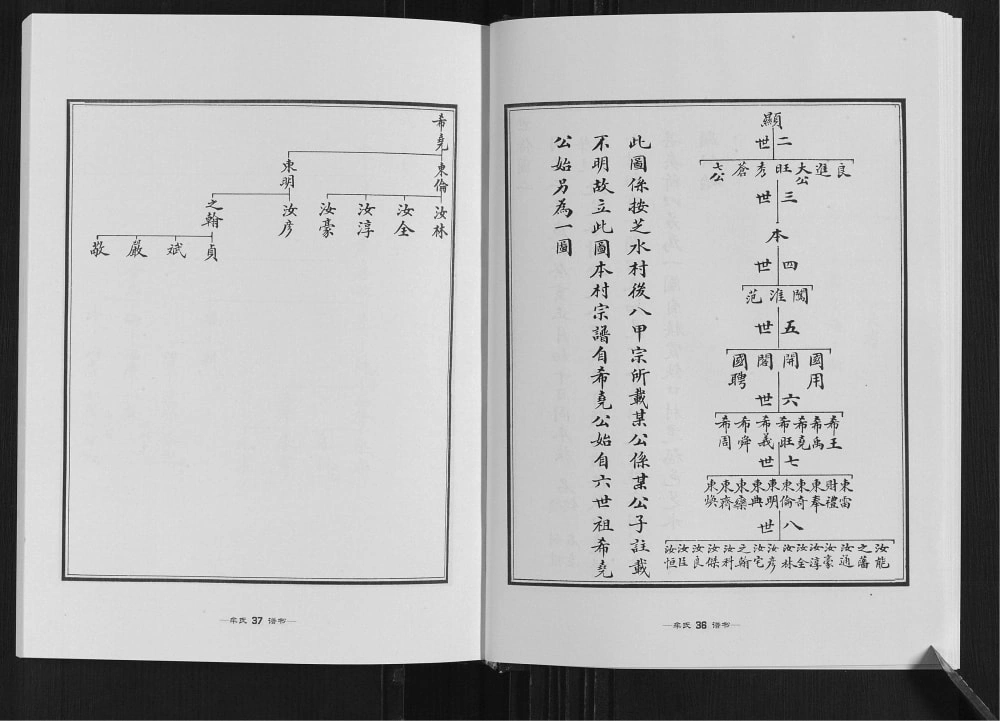 顯
二世
良 進 大公 旺 秀 蒼 六公
三世
本
四世
闖 淮 范
五世
國用 開 閣 國聘
六世
希王 希禹 希堯 希旺 希義 希舜 希周
七世
東雷 財禮 東奉 東奇 東倫 東明 東興 東齊 東煥
八世
汝龍 之藩 汝通 汝豪 汝淳 汝全 汝林 汝彥 汝宅 之翰 汝科 汝傑 汝良 汝臣 汝恒
此圖係按芝水村後八甲宗所載某公係某公子註載
不明故立此圖本村宗譜自希堯公始自六世祖希堯
公始另為一圖
牟氏 36 谱书
希堯
東倫 東明
汝林 汝全 汝淳 汝豪 汝彥 之翰
貞 斌 嚴 敬
牟氏 37 谱书